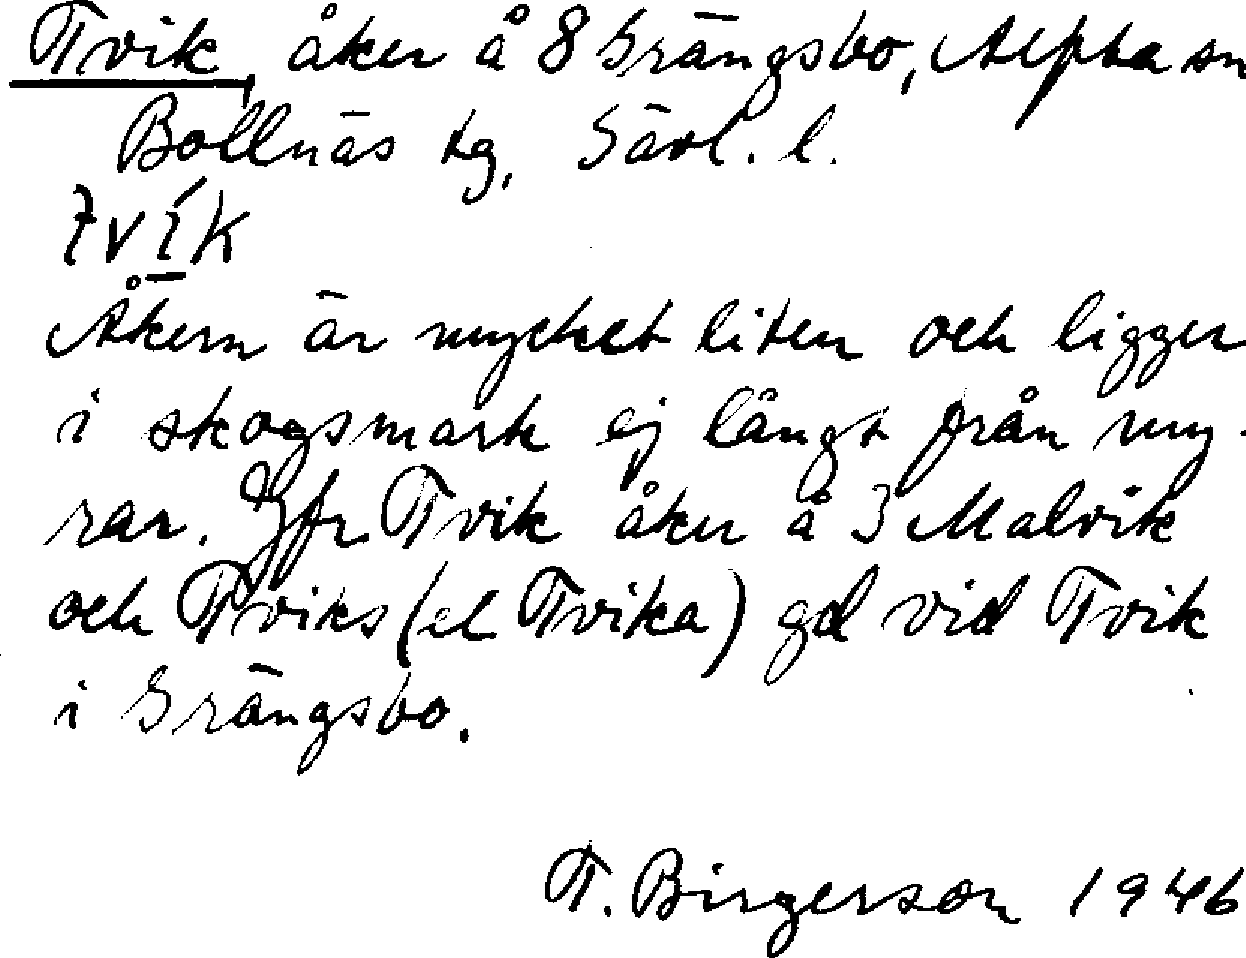 Tvik, åker å 8 Grängsbo, Alfta sn
Bollnäs tg, Gävl. l.
tvík
Åkern är mycket liten och ligger
i skogsmark ej långt från my-
rar. Jfr Tvik åker å 3 Malvik
och Tviks (el Tvika) gd vid Tvik
i Grängsbo.
T. Birgerson 1946